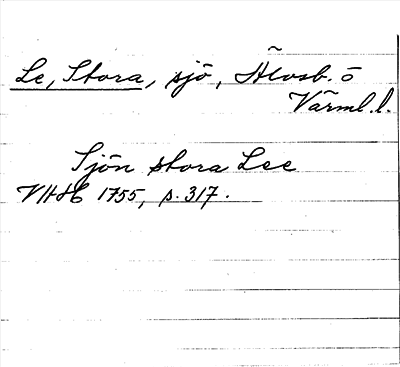 Le, Stora, sjö, Älvsb. o
Värml. l.
Sjön stora Lee
VHAH 1755, s. 317.